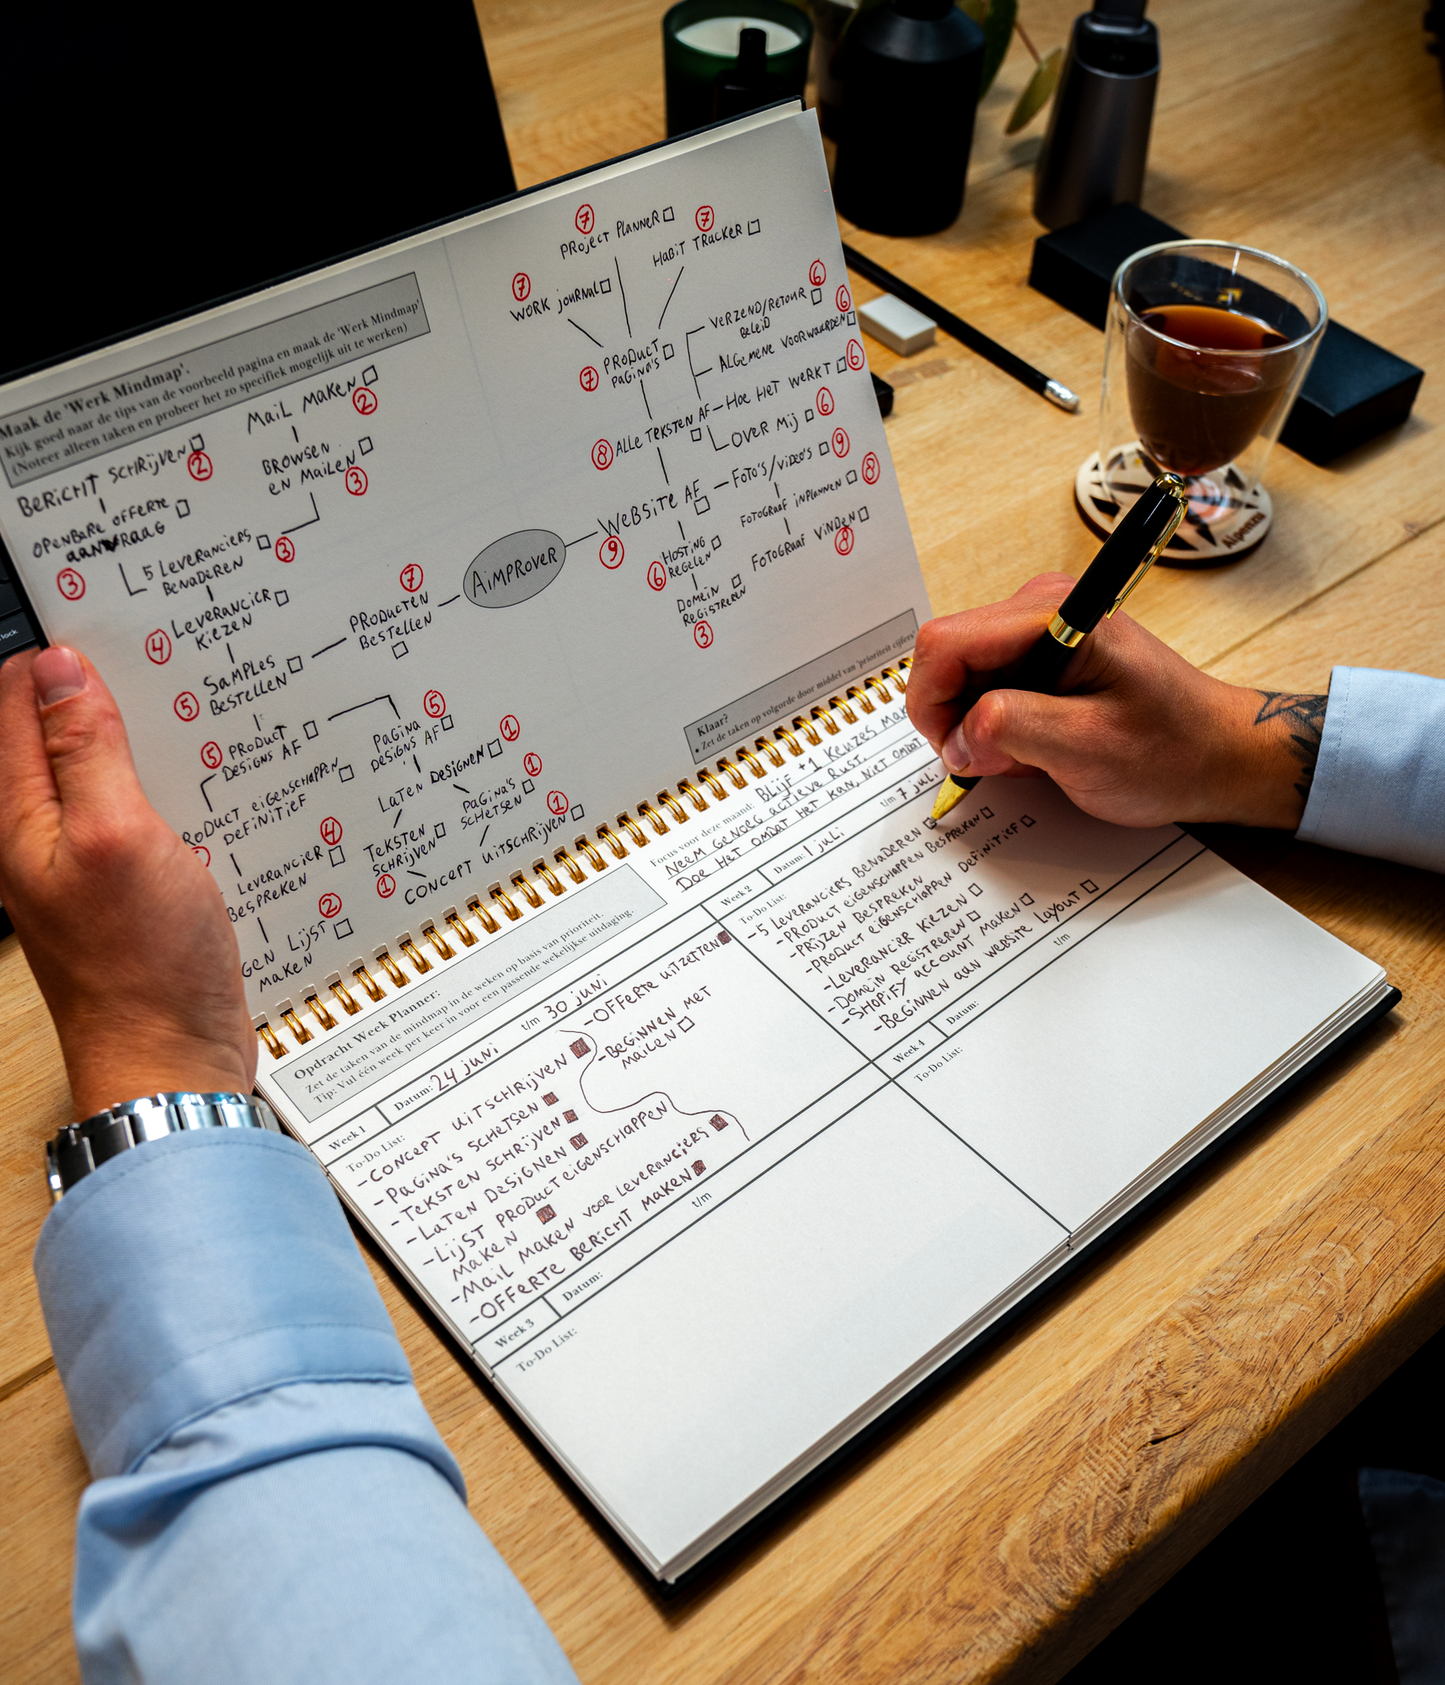 Maak de 'Werk Mindmap'.
Kijk goed naar de tips van de voorbeeld pagina en maak de 'Werk Mindmap'
(Noteer alleen taken en probeer het zo specifiek mogelijk uit te werken)
MAIL MAKEN
2
BERICHT SCHRIJVEN
2
BROWSEN
EN MAILEN
3
OPENBARE OFFERTE
AANVRAAG
3
5 LEVERANCIERS
BENADEREN
3
LEVERANCIER
KIEZEN
4
SAMPLES
BESTELLEN
5
PRODUCTEN
BESTELLEN
7
AIMPROVER
PRODUCT
DESIGNS AF
5
PAGINA
DESIGNS AF
5
LATEN DESIGNEN
1
PAGINA'S
SCHETSEN
1
TEKSTEN
SCHRIJVEN
1
CONCEPT UITSCHRIJVEN
1
RODUCT EIGENSCHAPPEN
DEFINITIEF
LEVERANCIER
BESPREKEN
4
GEN LIJST
MAKEN
2
7
PROJECT PLANNER
7
HABIT TRACKER
7
WORK JOURNAL
7
PRODUCT
PAGINA'S
VERZEND/RETOUR
BELEID
6
ALGEMENE VOORWAARDEN
6
HOE HET WERKT
6
OVER MIJ
6
8
ALLE TEKSTEN AF
FOTO'S/VIDEO'S
9
WEBSITE AF
9
FOTOGRAAF INPLANNEN
8
FOTOGRAAF VINDEN
8
HOSTING
REGELEN
6
DOMEIN
REGISTREREN
3
Klaar?
• Zet de taken op volgorde door middel van 'prioriteit cijfers'
Opdracht Week Planner:
Zet de taken van de mindmap in de weken op basis van prioriteit.
Tip: Vul één week per keer in voor een passende wekelijkse uitdaging.
Focus voor deze maand: BLIJF +1 KEUZES MAK
NEEM GENOEG ACTIEVE RUST.
DOE HET OMDAT HET KAN, NIET OMDAT
Week 1
Datum: 24 JUNI t/m 30 JUNI
To-Do List:
-CONCEPT UITSCHRIJVEN
-PAGINA'S SCHETSEN
-TEKSTEN SCHRIJVEN
-LATEN DESIGNEN
-LIJST PRODUCT EIGENSCHAPPEN
MAKEN
-MAIL MAKEN VOOR LEVERANCIERS
-OFFERTE BERICHT MAKEN
-OFFERTE UITZETTEN
-BEGINNEN MET
MAILEN
Week 2
Datum: 1 JULI t/m 7 JULI
To-Do List:
-5 LEVERANCIERS BENADEREN
-PRODUCT EIGENSCHAPPEN BESPREKEN
-PRIJZEN BESPREKEN
-PRODUCT EIGENSCHAPPEN DEFINITIEF
-LEVERANCIER KIEZEN
-DOMEIN REGISTREREN
-SHOPIFY ACCOUNT MAKEN
-BEGINNEN AAN WEBSITE LAYOUT
Week 3
Datum: t/m
To-Do List:
Week 4
Datum: t/m
To-Do List: